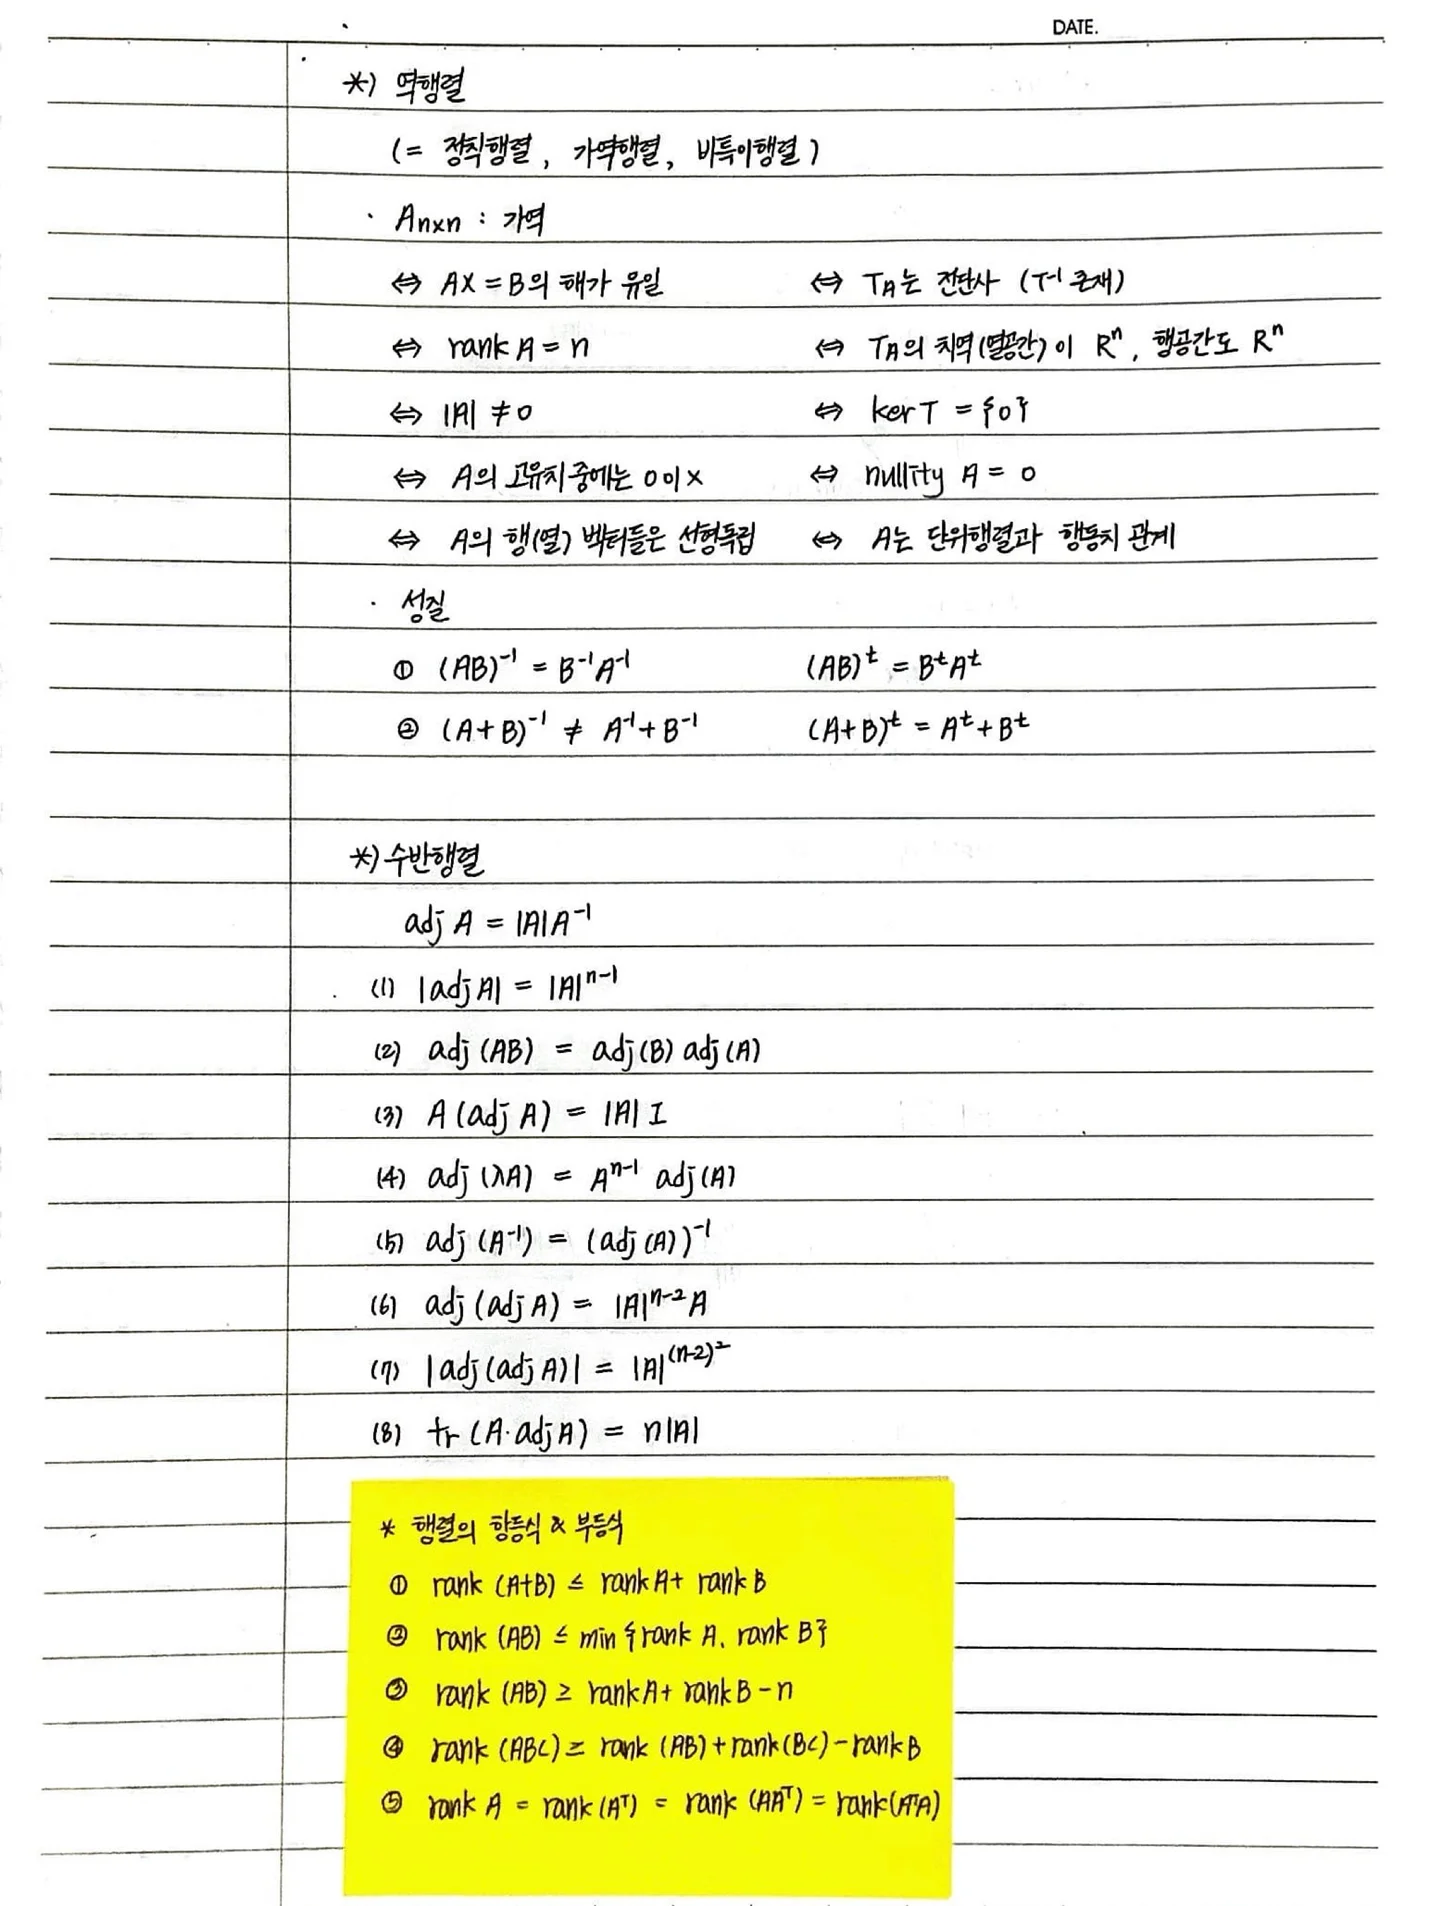 DATE.
*) 역행렬
(= 정칙행렬, 가역행렬, 비특이행렬)
· Anxn : 가역
⇔ AX = B의 해가 유일 ⇔ TA는 전단사 (T⁻¹ 존재)
⇔ rank A = n ⇔ TA의 치역(열공간)이 Rⁿ, 행공간도 Rⁿ
⇔ |A| ≠ 0 ⇔ ker T = {0}
⇔ A의 고유치 중에는 0이 X ⇔ nullity A = 0
⇔ A의 행(열) 벡터들은 선형독립 ⇔ A는 단위행렬과 행동치 관계
· 성질
① (AB)⁻¹ = B⁻¹A⁻¹ (AB)ᵗ = BᵗAᵗ
② (A+B)⁻¹ ≠ A⁻¹+B⁻¹ (A+B)ᵗ = Aᵗ+Bᵗ
*) 수반행렬
adj A = |A|A⁻¹
(1) |adj A| = |A|ⁿ⁻¹
(2) adj (AB) = adj(B) adj(A)
(3) A (adj A) = |A| I
(4) adj (λA) = Aⁿ⁻¹ adj(A)
(5) adj (A⁻¹) = (adj(A))⁻¹
(6) adj (adj A) = |A|ⁿ⁻² A
(7) |adj(adj A)| = |A|^(n-2)²
(8) tr (A·adj A) = n|A|
* 행렬의 항등식 & 부등식
① rank (A+B) ≤ rank A + rank B
② rank (AB) ≤ min {rank A, rank B}
③ rank (AB) ≥ rank A + rank B - n
④ rank (ABC) ≥ rank (AB) + rank(BC) - rank B
⑤ rank A = rank (Aᵀ) = rank (AAᵀ) = rank(AᵀA)